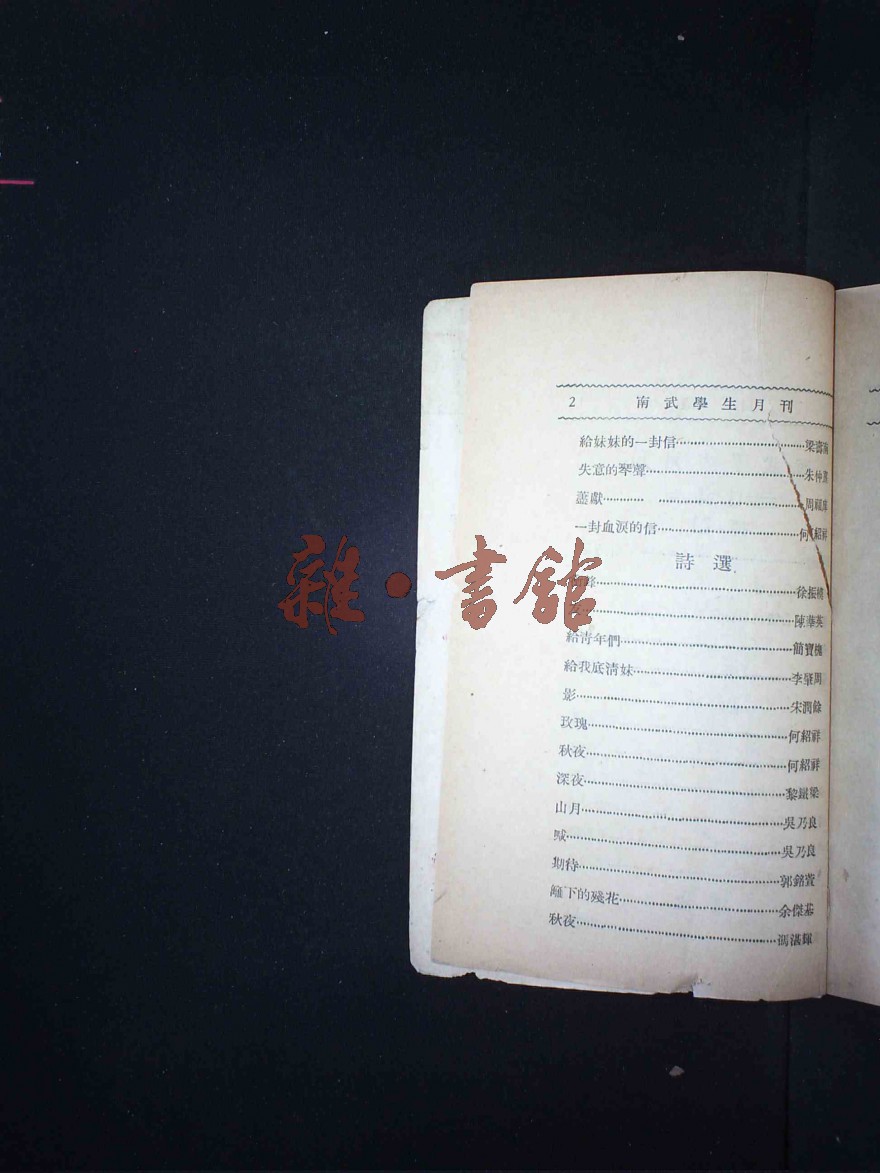 2 南武學生月刊
給妹妹的一封信……梁濤
失意的琴聲……朱仲
獻……周
一封血淚的信……何紹祥
詩選
……徐振
……陳華英
給青年們……簡寶槐
給我底清妹……李肇周
影……宋潤餘
玫瑰……何紹祥
秋夜……何紹祥
深夜……黎梁
山月……吳乃良
喊……吳乃良
期待……郭銘萱
籬下的殘花……余傑基
秋夜……馮湛輝
雜·書館